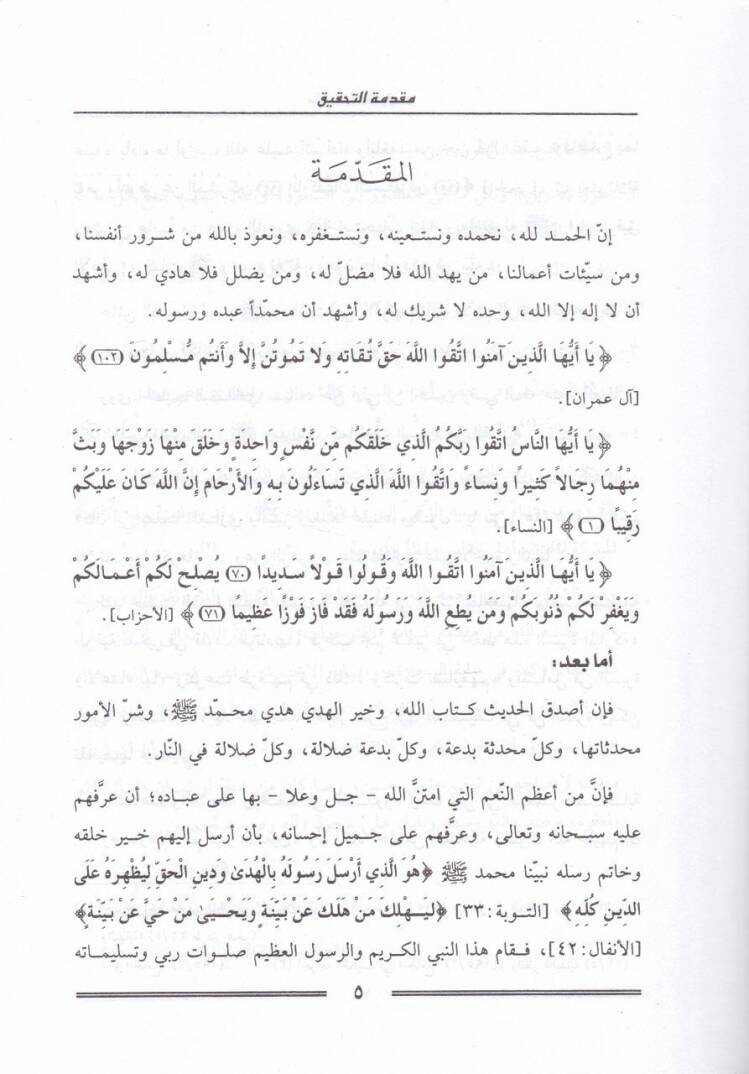 مقدمة التحقيق
المقدّمة
إنّ الحمد لله، نحمده ونستعينه، ونستغفره، ونعوذ بالله من شرور أنفسنا،
ومن سيّئات أعمالنا، من يهد الله فلا مضلّ له، ومن يضلل فلا هادي له، وأشهد
أن لا إله إلا الله، وحده لا شريك له، وأشهد أن محمّداً عبده ورسوله.
﴿يَا أَيُّهَا الَّذِينَ آمَنُوا اتَّقُوا اللَّهَ حَقَّ تُقَاتِهِ وَلا تَمُوتُنَّ إِلاَّ وَأَنتُم مُّسْلِمُونَ (١٠٢)﴾
[آل عمران].
﴿يَا أَيُّهَا النَّاسُ اتَّقُوا رَبَّكُمُ الَّذِي خَلَقَكُم مِّن نَّفْسٍ وَاحِدَةٍ وَخَلَقَ مِنْهَا زَوْجَهَا وَبَثَّ
مِنْهُمَا رِجَالاً كَثِيرًا وَنِسَاءً وَاتَّقُوا اللَّهَ الَّذِي تَسَاءَلُونَ بِهِ وَالأَرْحَامَ إِنَّ اللَّهَ كَانَ عَلَيْكُمْ
رَقِيبًا (١)﴾ [النساء].
﴿يَا أَيُّهَا الَّذِينَ آمَنُوا اتَّقُوا اللَّهَ وَقُولُوا قَوْلاً سَدِيدًا (٧٠) يُصْلِحْ لَكُمْ أَعْمَالَكُمْ
وَيَغْفِرْ لَكُمْ ذُنُوبَكُمْ وَمَن يُطِعِ اللَّهَ وَرَسُولَهُ فَقَدْ فَازَ فَوْزًا عَظِيمًا (٧١)﴾ [الأحزاب].
أما بعد:
فإن أصدق الحديث كتاب الله، وخير الهدي هدي محمّد ﷺ، وشرّ الأمور
محدثاتها، وكلّ محدثة بدعة، وكلّ بدعة ضلالة، وكلّ ضلالة في النّار.
فإنَّ من أعظم النّعم التي امتنَّ الله ــ جل وعلا ــ بها على عباده؛ أن عرَّفهم
عليه سبحانه وتعالى، وعرَّفهم على جميل إحسانه، بأن أرسل إليهم خير خلقه
وخاتم رسله نبيّنا محمد ﷺ ﴿هُوَ الَّذِي أَرْسَلَ رَسُولَهُ بِالْهُدَىٰ وَدِينِ الْحَقِّ لِيُظْهِرَهُ عَلَى
الدِّينِ كُلِّهِ﴾ [التوبة:٣٣] ﴿لِيَهْلِكَ مَنْ هَلَكَ عَنْ بَيِّنَةٍ وَيَحْيَىٰ مَنْ حَيَّ عَنْ بَيِّنَةٍ﴾
[الأنفال:٤٢]، فقام هذا النبي الكريم والرسول العظيم صلوات ربي وتسليماته
٥